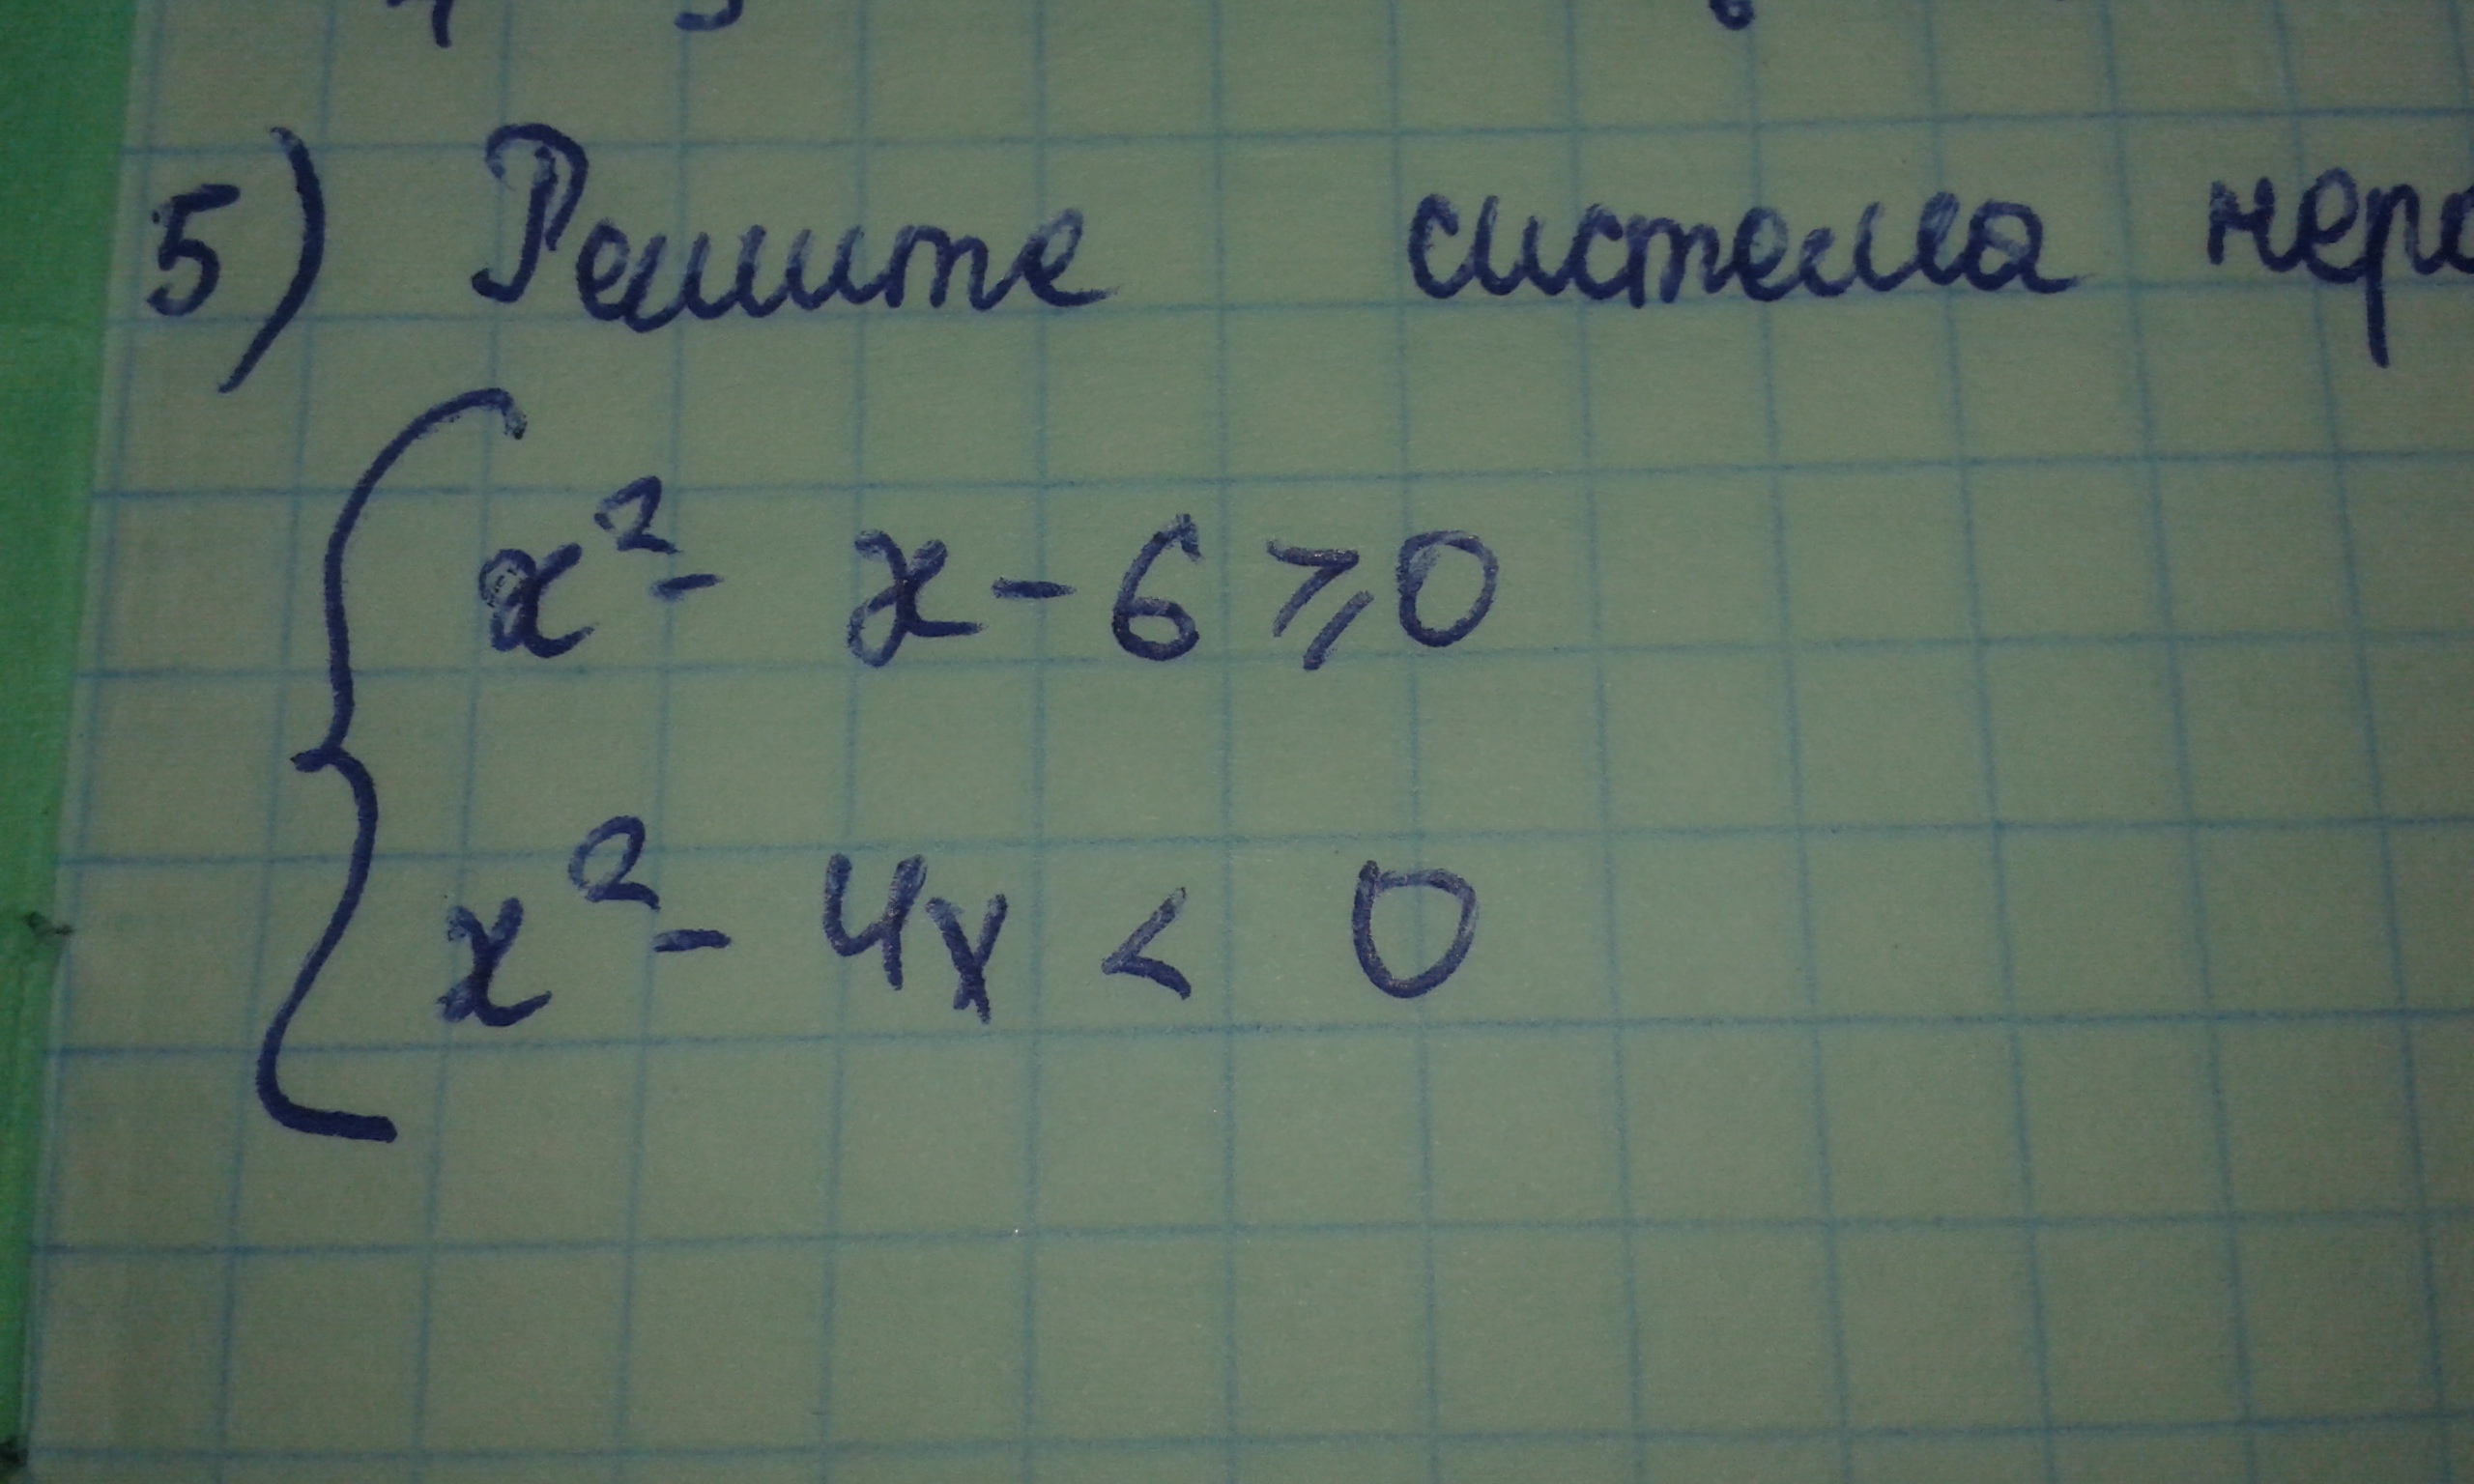 5) Решите система
x² - x - 6 ⩾ 0
x² - 4x < 0